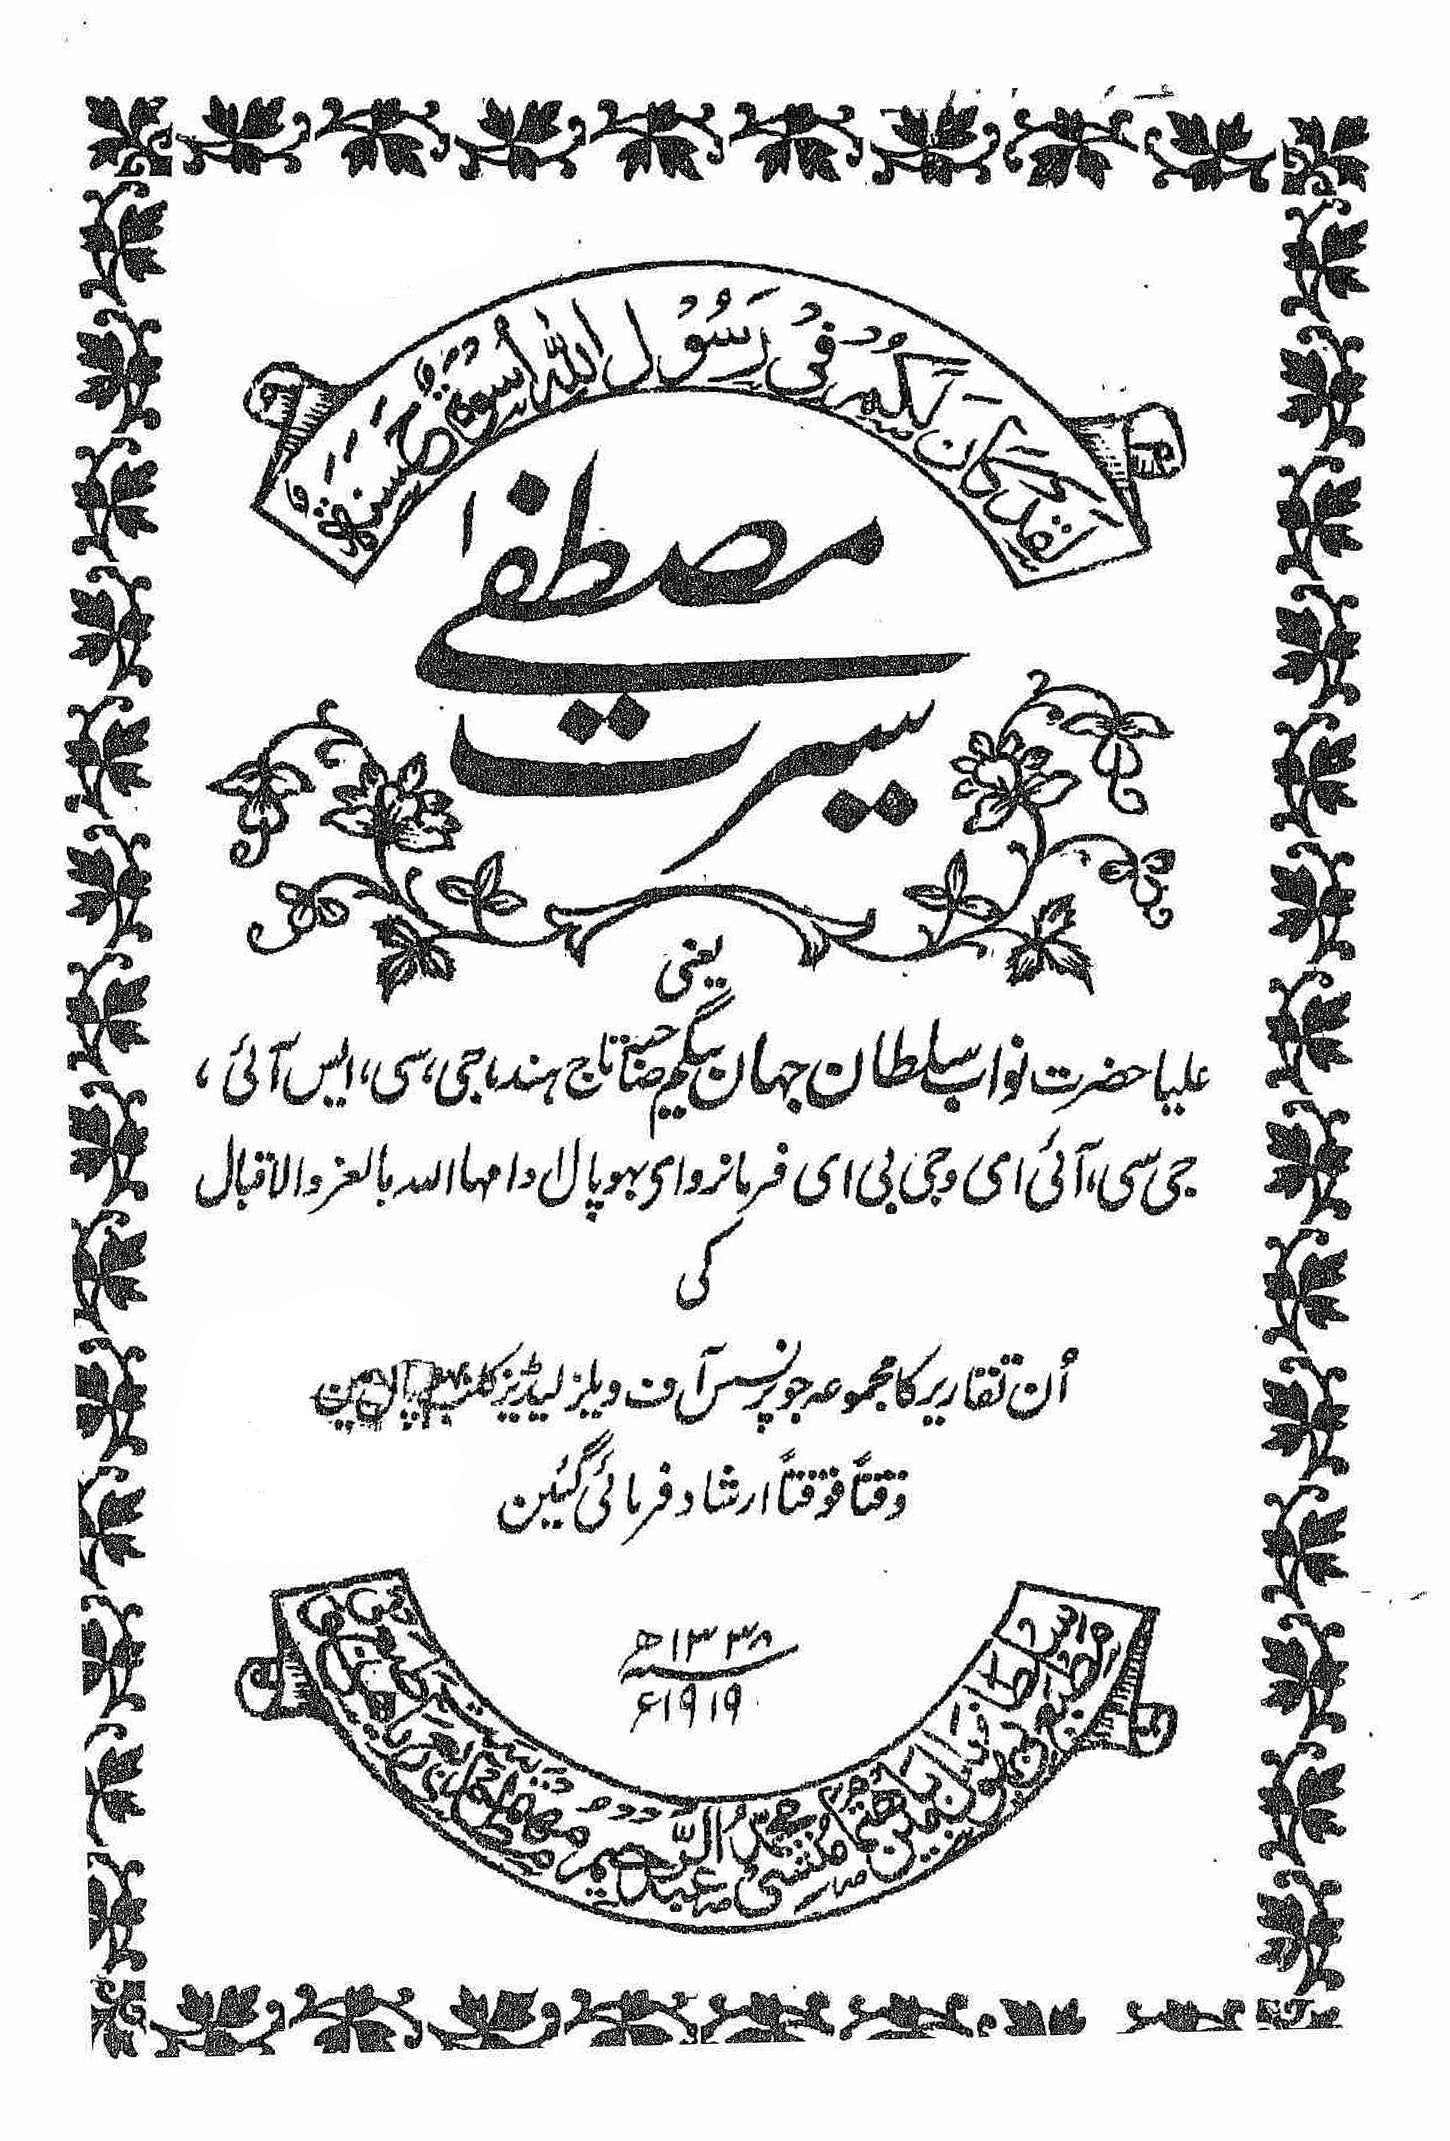 لَقَدْ كَانَ لَكُمْ فِیْ رَسُوْلِ اللّٰہِ اُسْوَۃٌ حَسَنَۃٌ
سیرت مصطفیٰ
یعنی
علیاحضرت نواب سلطان جہان بیگم صاحبہ تاج ہند، جی، سی، ایس آئی،
جی سی، آئی ای وجی بی ای فرمانروای بہوپال دامہا اللہ بالعز والاقبال
کی
اُن تقاریر کا مجموعہ جو پرنسس آف ویلز لیڈیز کلب بھوپال مین
وقتاً فوقتاً ارشاد فرمائی گئین
۱۳۳۸ھ
۱۹۱۹ء